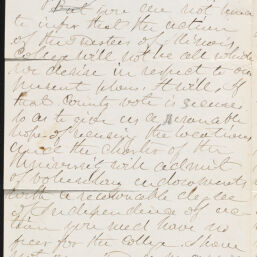 But you are not
to infer that the action
of the Trustees of Illinois
College will not be all which
we desire in respect to our
present plans. It will, if
that County vote is
so as to give us a reasonable
hope of securing the location,
and the charter of the
University will admit
of voluntary endowments
with a reasonable degree
of Independence of
then you need have no
fear for the College. I have